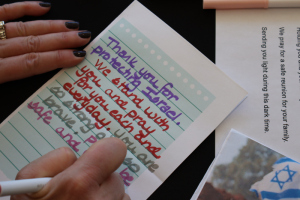 Thank you for
protecting Israel.
We stand with
you and pray
for you each and
everyday.
you are
safe and
We pray for a safe reunion for your family.
Sending you light during this dark time.